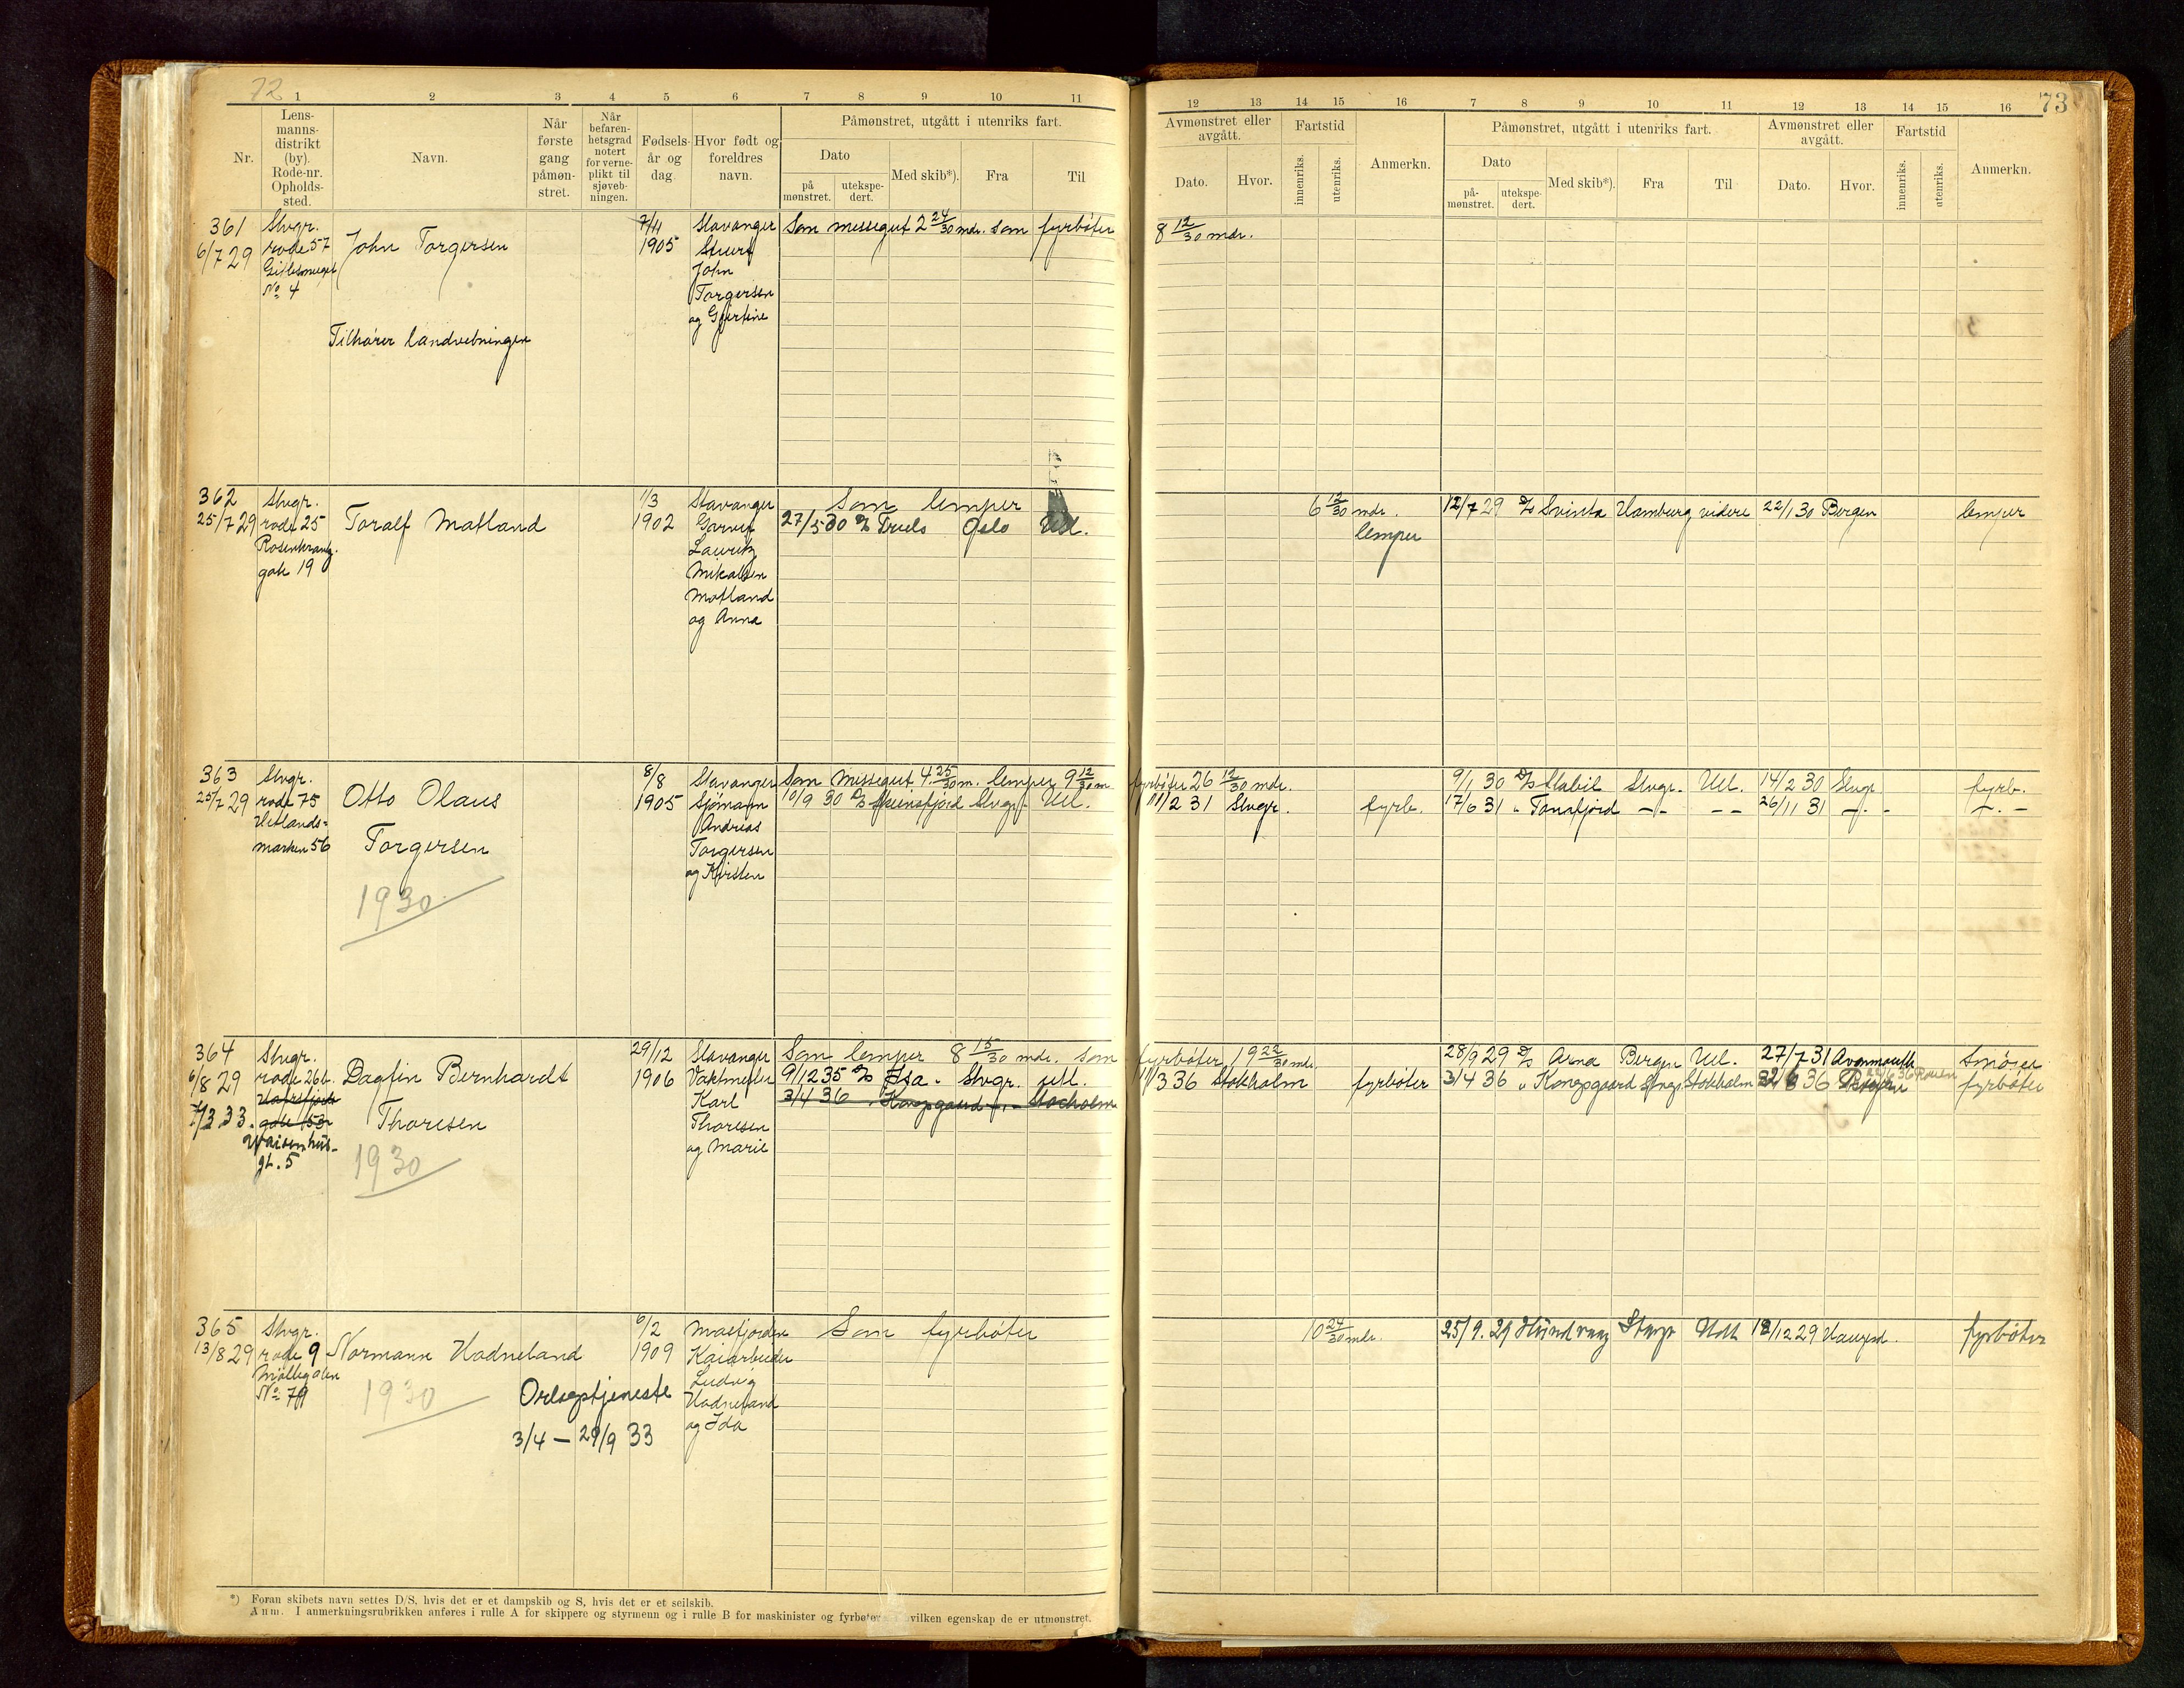 72
1 2 3 4 5 6 7 8 9 10 11
Nr.
Lens-
manns-
distrikt
(by).
Rode-nr.
Opholds-
sted.
Navn.
Når
første
gang
påmøn-
stret.
Når
befaren-
hetsgrad
notert
for verne-
plikt til
sjøveb-
ningen.
Fødsels-
år og
dag
Hvor født og
foreldres
navn.
Påmønstret, utgått i utenriks fart.
Dato
på
mønstret.
utekspe-
dert.
Med skib*).
Fra
Til
361 Stvgr. John Torgersen 7/11 Stavanger Som messegut 2 24/30 mdr. som fyrbøter
6/7 29 rode 57 1905
No 4 John
Torgersen
og Gjertine
Tilhører landvebningen
362 Stvgr. Toralf Matland 1/3 Stavanger Som lemper
25/7 29 rode 25 1902 27/5 30 D/S Truls Oslo Utl.
Rosenkrantz- Lauritz
gate 19 Mikalsen
Matland
og Anna
363 Stvgr. Otto Olaus 8/8 Stavanger Som messegut 4 25/30 m. lemper 9 12/30 m
25/7 29 rode 75 Torgersen 1905 Sjømann 10/9 30 D/S Stvgr. Utl.
Hetlands- Andreas
marken 56 Torgersen
og Kirsten
1930
364 Stvgr. Dagfin Bernhardt 29/12 Stavanger Som lemper 8 15/30 mdr. som
6/8 29 rode 26b. Thoresen 1906 Vaktmester 9/12 35 D/S Isa Stvgr. utl.
Karl 3/4 36 " Kongsgaard - " - Stocholm
gate 53 Thoresen
Vaisenhus- og Marie
gt. 5
1930
365 Stvgr. Normann Hadneland 6/2 Masfjorden Som fyrbøter
13/8 29 rode 9 1909 Kaiarbeider
Møllegaten Ludvig
No 79 Hadneland
og Ida
1930
Orlogstjeneste
3/4 — 29/9 33
*) Foran skibets navn settes D/S, hvis det er et dampskib og S, hvis det er et seilskib.
Anm. I anmerkningsrubrikken anføres i rulle A for skippere og styrmenn og i rulle B for maskinister og fyrbøter vilken egenskap de er utmønstret.
73
12 13 14 15 16 7 8 9 10 11 12 13 14 15 16
Avmønstret eller
avgått.
Dato.
Hvor.
Fartstid
innenriks.
utenriks.
Anmerkn.
Påmønstret, utgått i utenriks fart.
Dato
på-
mønstret.
utekspe-
dert.
Med skib*).
Fra
Til
Avmønstret eller
avgått.
Dato.
Hvor.
Fartstid
innenriks.
utenriks.
Anmerkn.
8 12/30 mdr.
6 12/30 mdr. 12/7 29 D/S Svinta Hamburg videre 22/1 30 Bergen lemper
lemper
fyrbøter 26 12/30 mdr. 9/1 30 D/S Stabil Stvgr. Utl. 14/2 30 Stvgr. fyrb.
11/2 31 Stvgr. fyrb. 17/6 31 " Tanafjord - " - - - 26/11 31 - " - - " -
fyrbøter 19 22/30 mdr. 28/9 29 D/S Arna Bergen Utl. 27/7 31 Avonmouth Smører
11/3 36 Stokholm fyrbøter 3/4 36 " Kongsgaard Stvgr. Stokholm Rouen fyrbøter
10 24/30 mdr. 25/9. 29 Hundvaag Stvgr Utl 18/12 29 Haugsd. fyrbøter